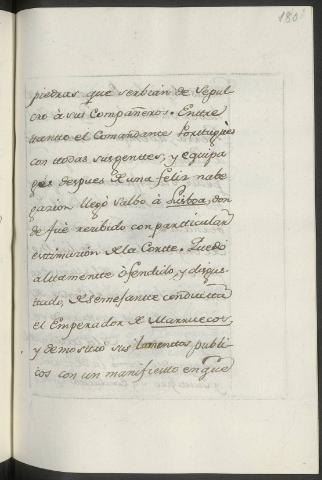 180
piedras que serbian de Sepul
cro à sus Compañeros. Entre
tantto el Comandante Porttugues
con ttodas sus gentes, y equipa
ges despues de una feliz nabe
gazion llegò Salbo à Lisboa, don
de fuè rezibido con partticular
esttimazion de la Cortte. Quedò
altamentte ofendido, y disgus
tado, de semejantte conductta
el Emperador de Marruecos,
y demostrò sus lamenttos publi
cos con un manifiesto en que